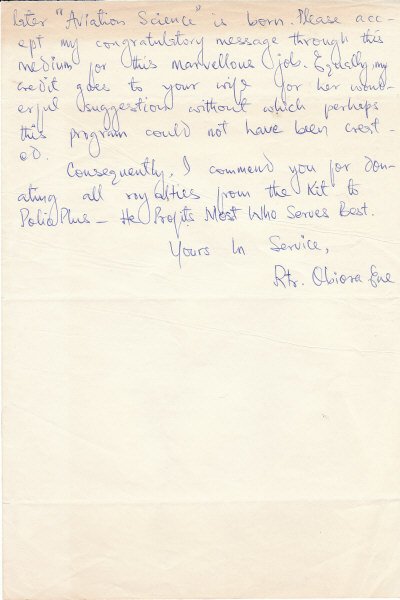 later "Aviation Science" is born. Please acc-
ept my congratulatory message through this
medium for this marvellous job. Equally, my
credit goes to your wife for her wond-
erful suggestion without which perhaps
this program could not have been creat-
ed.
Consequently, I commend you for don-
ating all royalties from the Kit to
PolioPlus - He Profits Most Who Serves Best.
Yours In Service,
Rtr. Obiora Ene